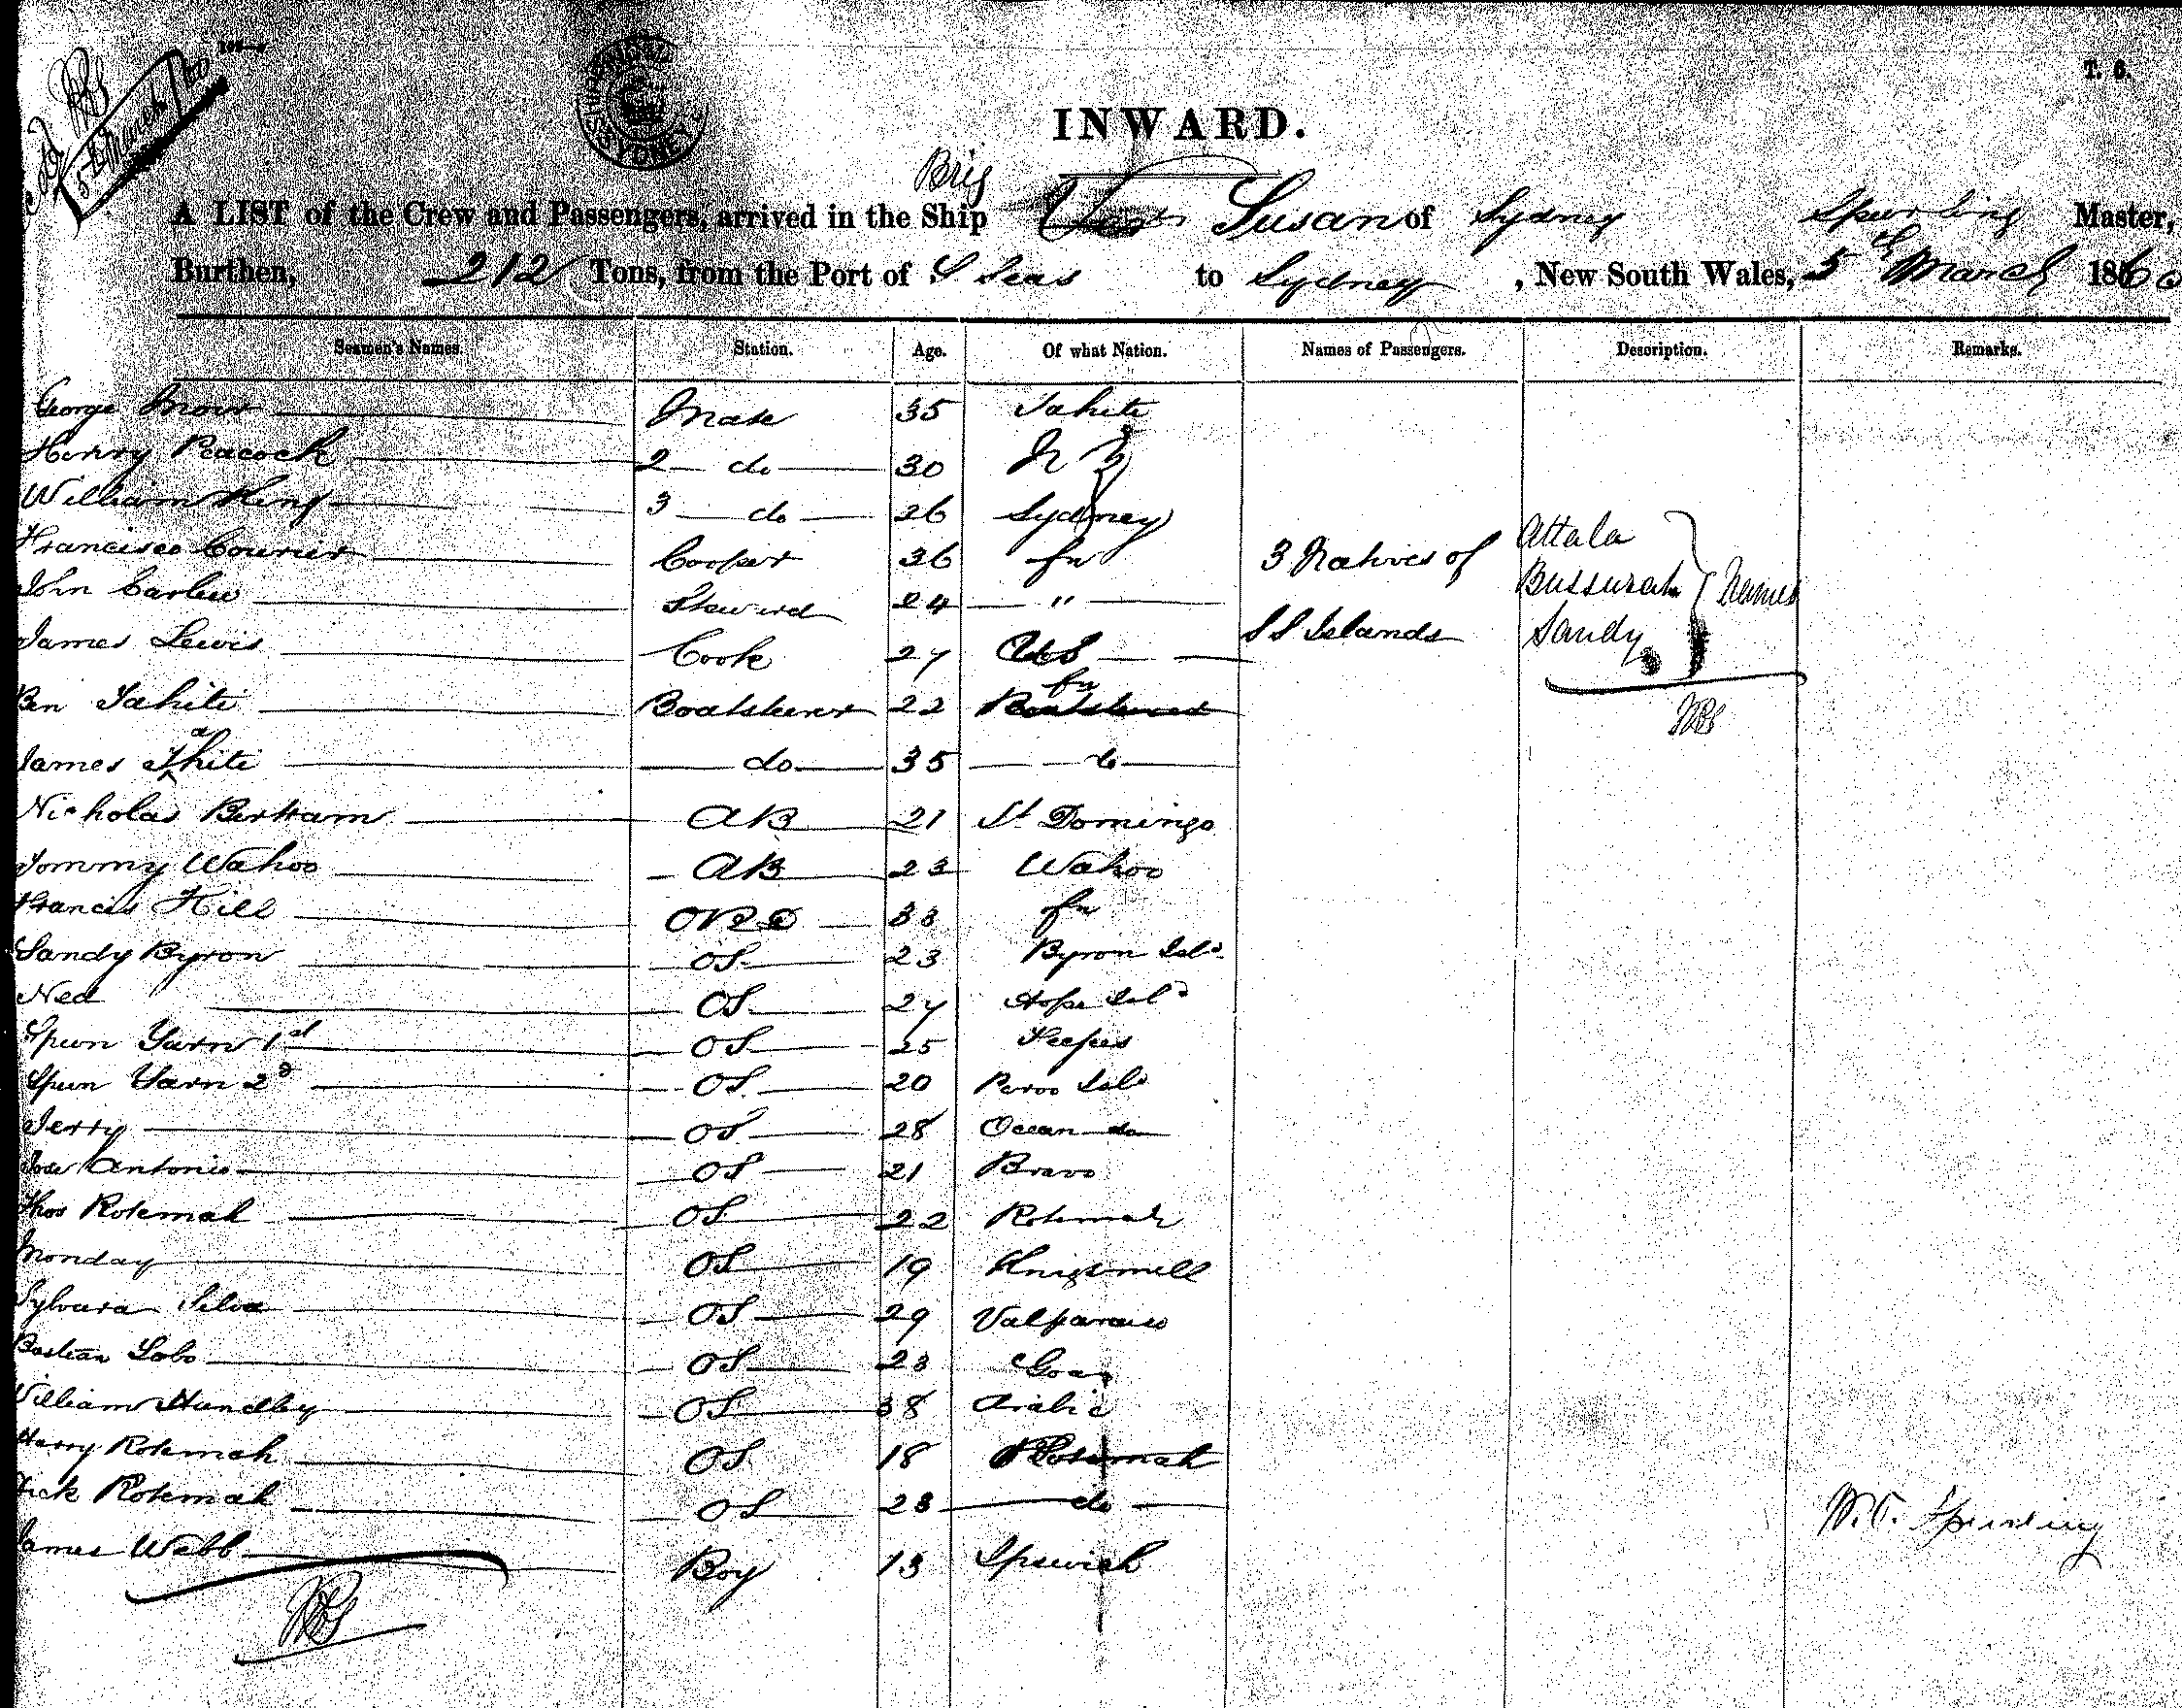 T. 6.
INWARD.
Brig
A LIST of the Crew and Passengers, arrived in the Ship Susan of Sydney Spurling Master,
Burthen, 212 Tons, from the Port of S Seas to Sydney, New South Wales, 5th March 1860
Seamen's Names. Station. Age. Of what Nation. Names of Passengers. Description. Remarks.
George Mate 35 Tahiti
Henry Peacock 2 do 30 N Z
William King 3 do 26 Sydney
Francisco Courier Cooper 36 fn 3 Natives of Attala
John Steward 24 " Bussurah Names
James Lewis Cook 27 US S S Islands Sandy
Ben Tahiti Boatsteerer 22 fn
James Tahiti do 35 do
Nicholas Bertram AB 21 St Domingo
Tommy Wahoo AB 23 Wahoo
Francis Hill 33 fn
Sandy Byron OS 23 Byron Isld
Ned OS 27 Hope Isld
Spun Yarn 1st OS 25
Spun Yarn 2d OS 20 Peroo Isld
Jerry OS 28 Ocean do
Joe Antonio OS 21 Bravo
Thos Rotemah OS 22 Rotemah
Monday OS 19 Kingsmill
Silva OS 29 Valparaiso
Bastian Lobo OS 23 Goa
William Hundley OS 38 Arabia
Harry Rotemah OS 18 Rotemah
Dick Rotemah OS 23 do
James Webb Boy 13 Ipswich
W.T. Spurling